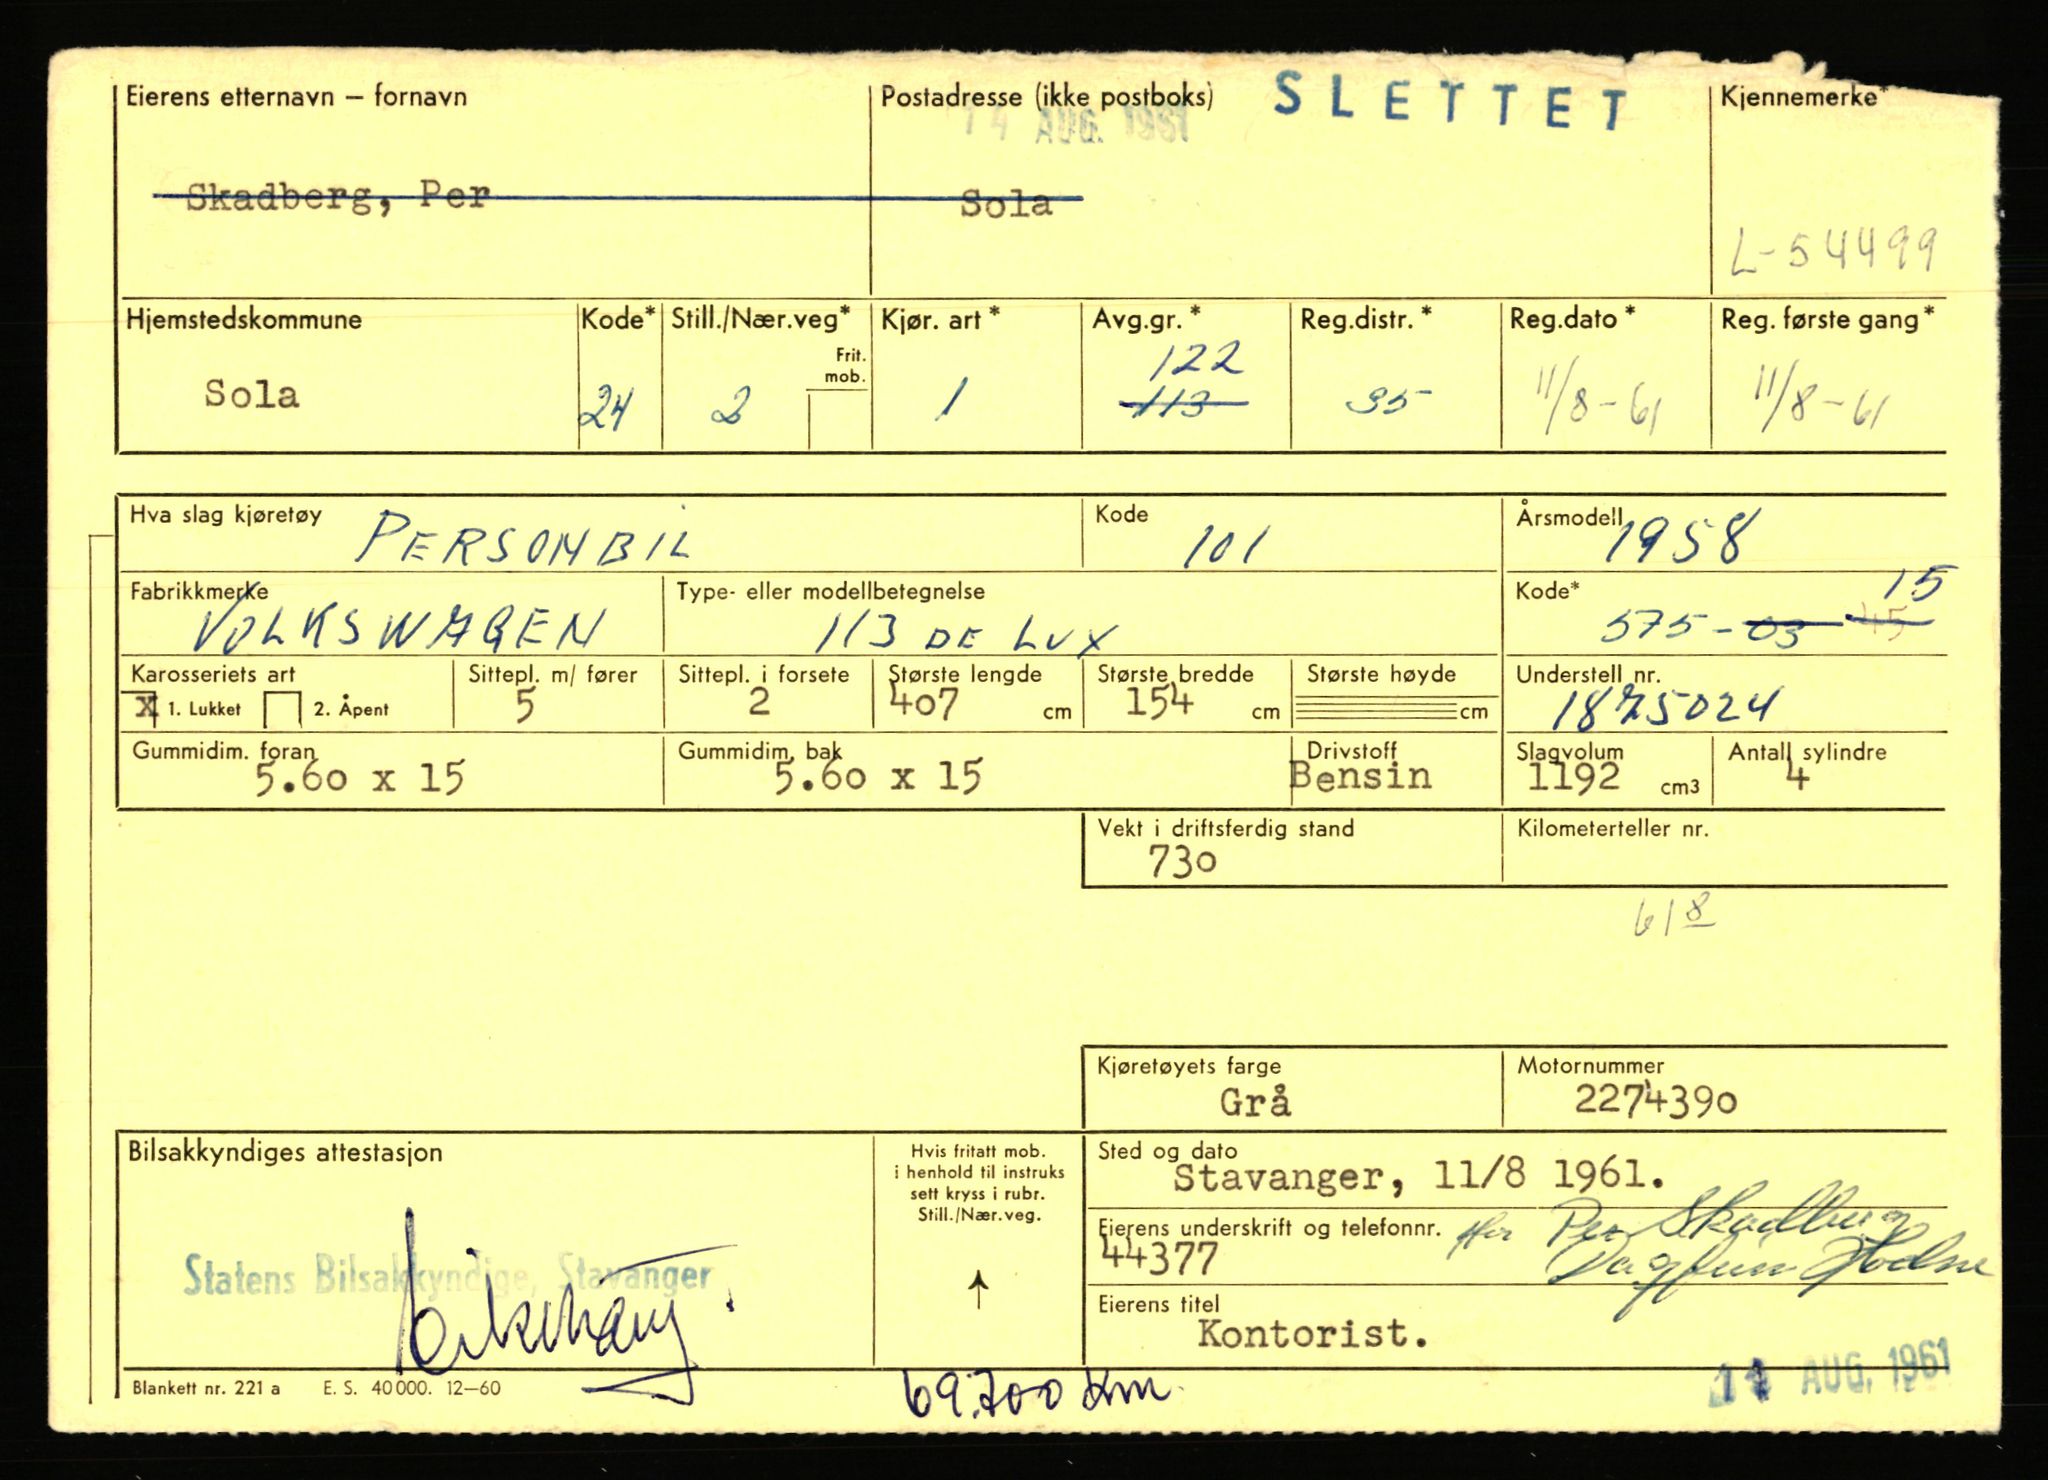 Eierens etternavn – fornavn
Postadresse (ikke postboks)
SLETTET
Kjennemerke*
14 AUG. 1961
Skadberg, Per
Sola
L-54499
Hjemstedskommune
Kode*
Still./Nær.veg*
Kjør. art*
Avg.gr.*
Reg.distr.*
Reg.dato*
Reg. første gang*
Frit. mob.
122
Sola
24
2
1
113
35
11/8-61
11/8-61
Hva slag kjøretøy
PERSONBIL
Kode
101
Årsmodell
1958
Fabrikkmerke
VOLKSWAGEN
Type- eller modellbetegnelse
113 DE LUX
Kode*
15
575-03 45
Karosseriets art
Sittepl. m/ fører
Sittepl. i forsete
Største lengde
Største bredde
Største høyde
Understell nr.
X 1. Lukket
2. Åpent
5
2
407 cm
154 cm
cm
1875024
Gummidim. foran
Gummidim. bak
Drivstoff
Slagvolum
Antall sylindre
5.60 x 15
5.60 x 15
Bensin
1192 cm3
4
Vekt i driftsferdig stand
Kilometerteller nr.
730
618
Kjøretøyets farge
Motornummer
Grå
2274390
Bilsakkyndiges attestasjon
Hvis fritatt mob.
i henhold til instruks
sett kryss i rubr.
Still./Nær.veg.
Sted og dato
Stavanger, 11/8 1961.
Eierens underskrift og telefonnr.
for Per Skadberg
44377
Dagfinn Hodne
Statens Bilsakkyndige, Stavanger
Eierens titel
Kontorist.
Blankett nr. 221 a E. S. 40 000. 12–60
69.700 km.
AUG. 1961